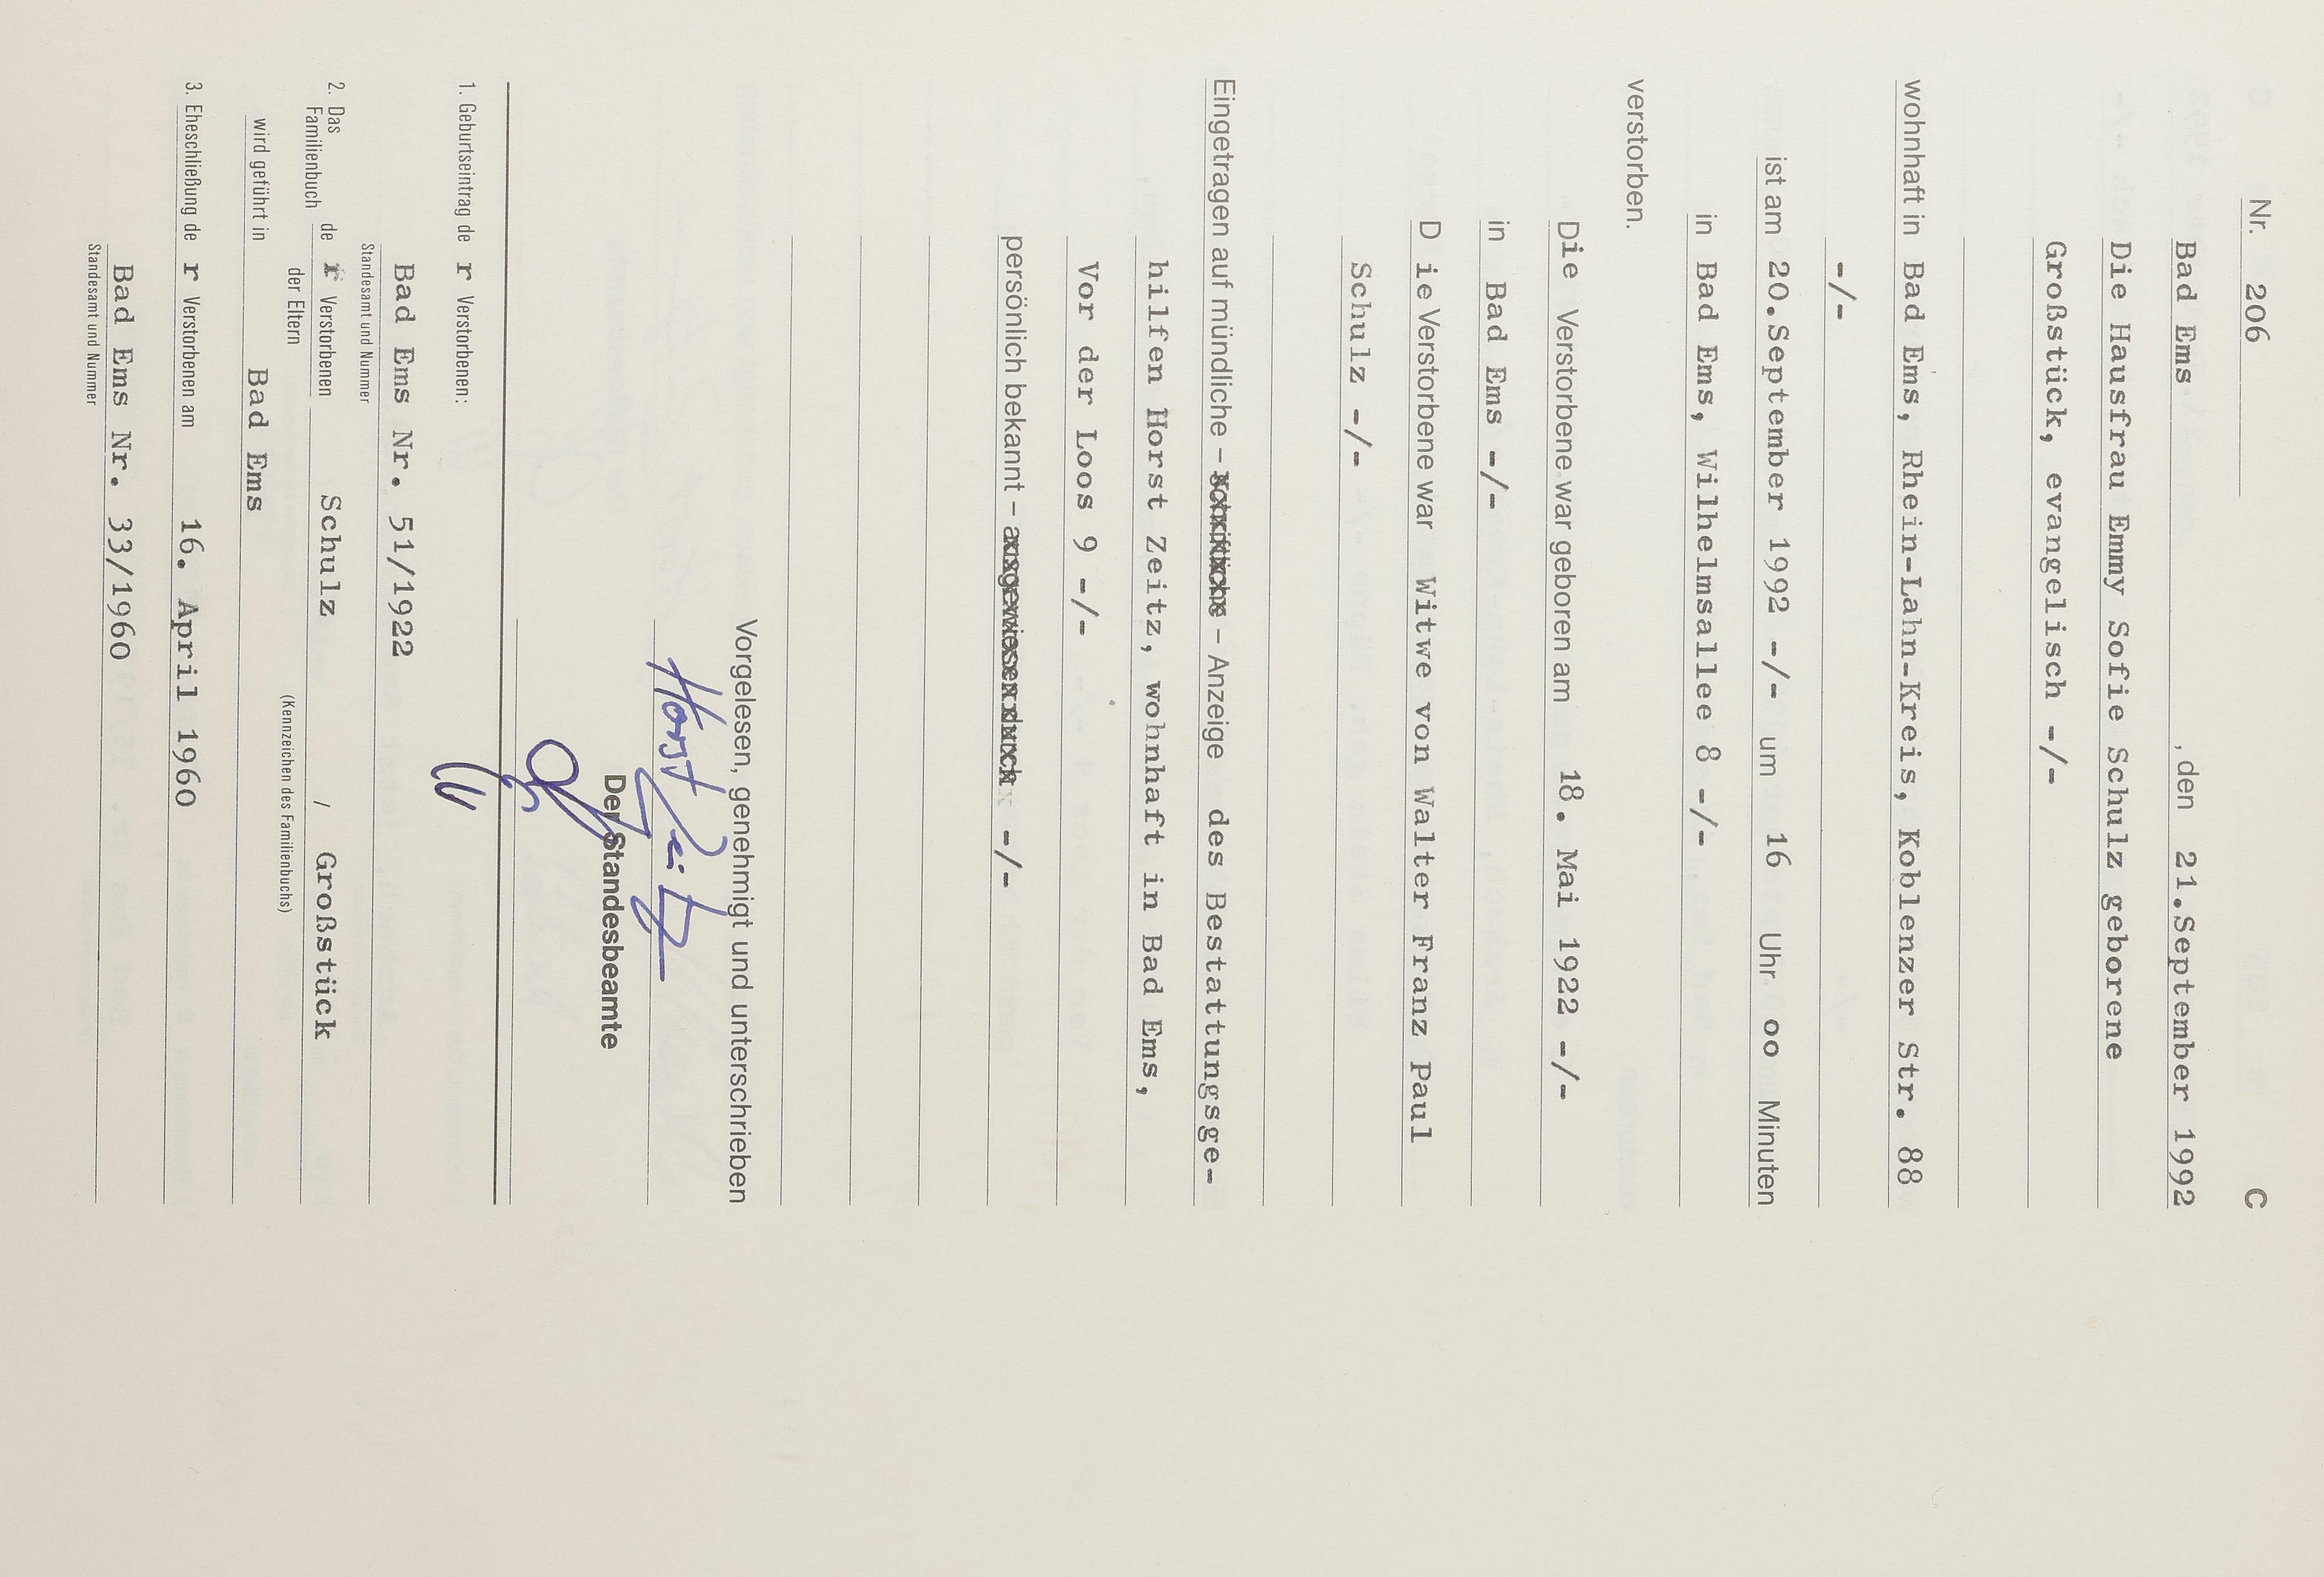 Nr. 206 C
Bad Ems , den 21.September 1992
Die Hausfrau Emmy Sofie Schulz geborene
Großstück, evangelisch -/-
wohnhaft in Bad Ems, Rhein-Lahn-Kreis, Koblenzer Str. 88
-/-
ist am 20.September 1992 -/- um 16 Uhr oo Minuten
in Bad Ems, Wilhelmsallee 8 -/-
verstorben.
Die Verstorbene war geboren am 18. Mai 1922 -/-
in Bad Ems -/-
D ie Verstorbene war Witwe von Walter Franz Paul
Schulz -/-
Eingetragen auf mündliche – schriftliche – Anzeige des Bestattungsge-
hilfen Horst Zeitz, wohnhaft in Bad Ems,
Vor der Loos 9 -/-
persönlich bekannt – ausgewiesen durch -/-
Vorgelesen, genehmigt und unterschrieben
Horst Zeitz
Der Standesbeamte
1. Geburtseintrag de r Verstorbenen:
Bad Ems Nr. 51/1922
Standesamt und Nummer
2. Das Familienbuch de r Verstorbenen Schulz / Großstück
der Eltern (Kennzeichen des Familienbuchs)
wird geführt in Bad Ems
3. Eheschließung de r Verstorbenen am 16. April 1960
Bad Ems Nr. 33/1960
Standesamt und Nummer